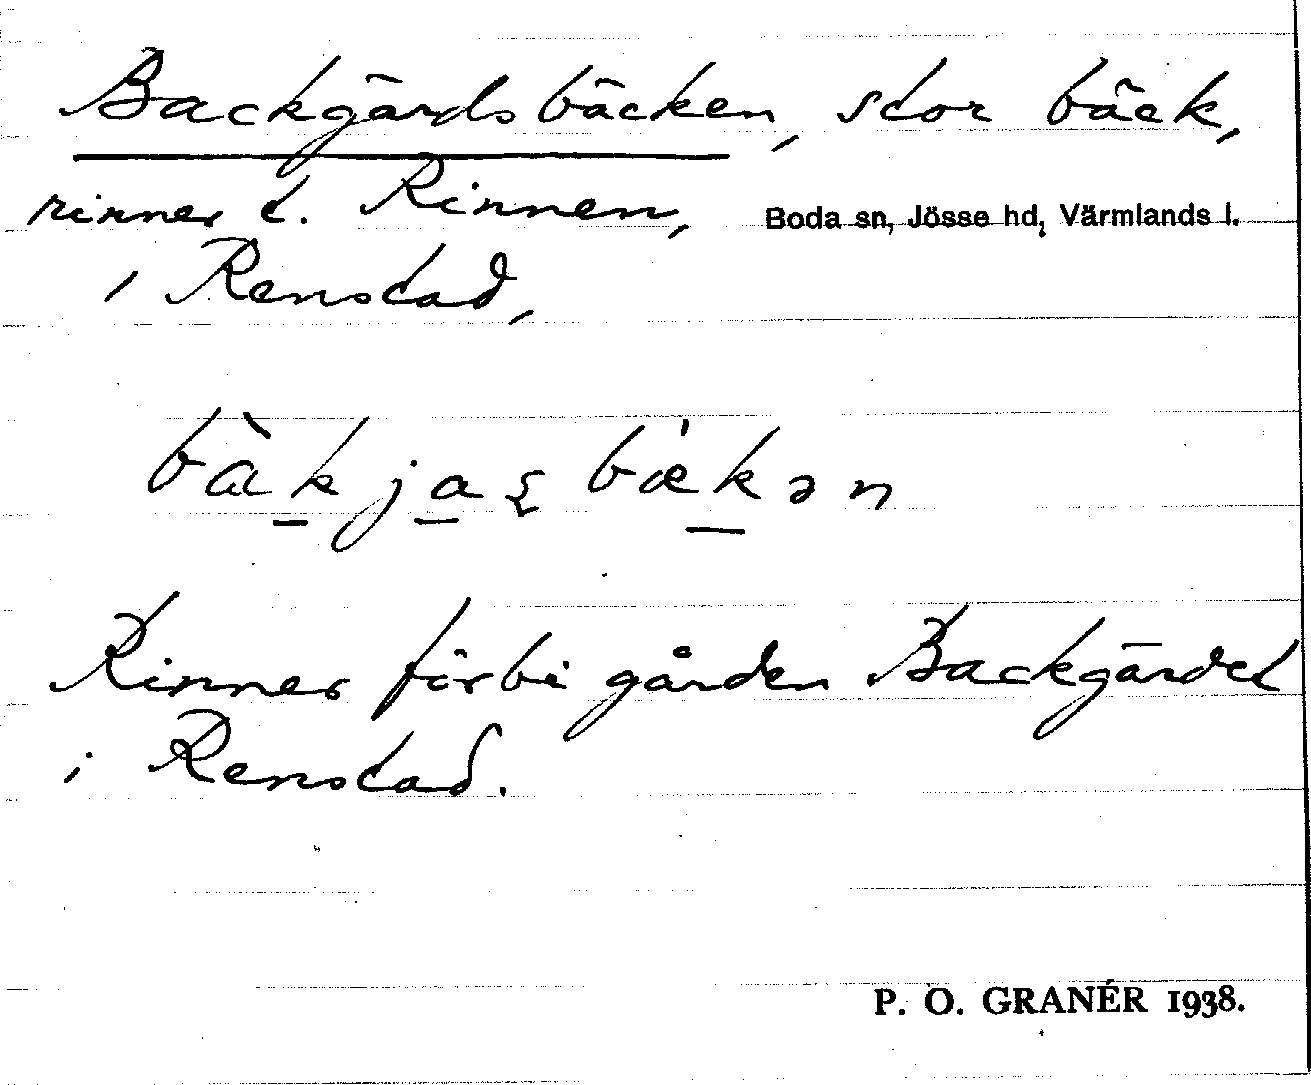 Backgärdsbäcken, stor bäck,
rinner t. Rinnen, Boda sn, Jösse hd, Värmlands l.
i Renstad,
bàkjaʂbæ̀kən
Rinner förbi gården Backgärdet
i Renstad.
P. O. GRANÉR 1938.